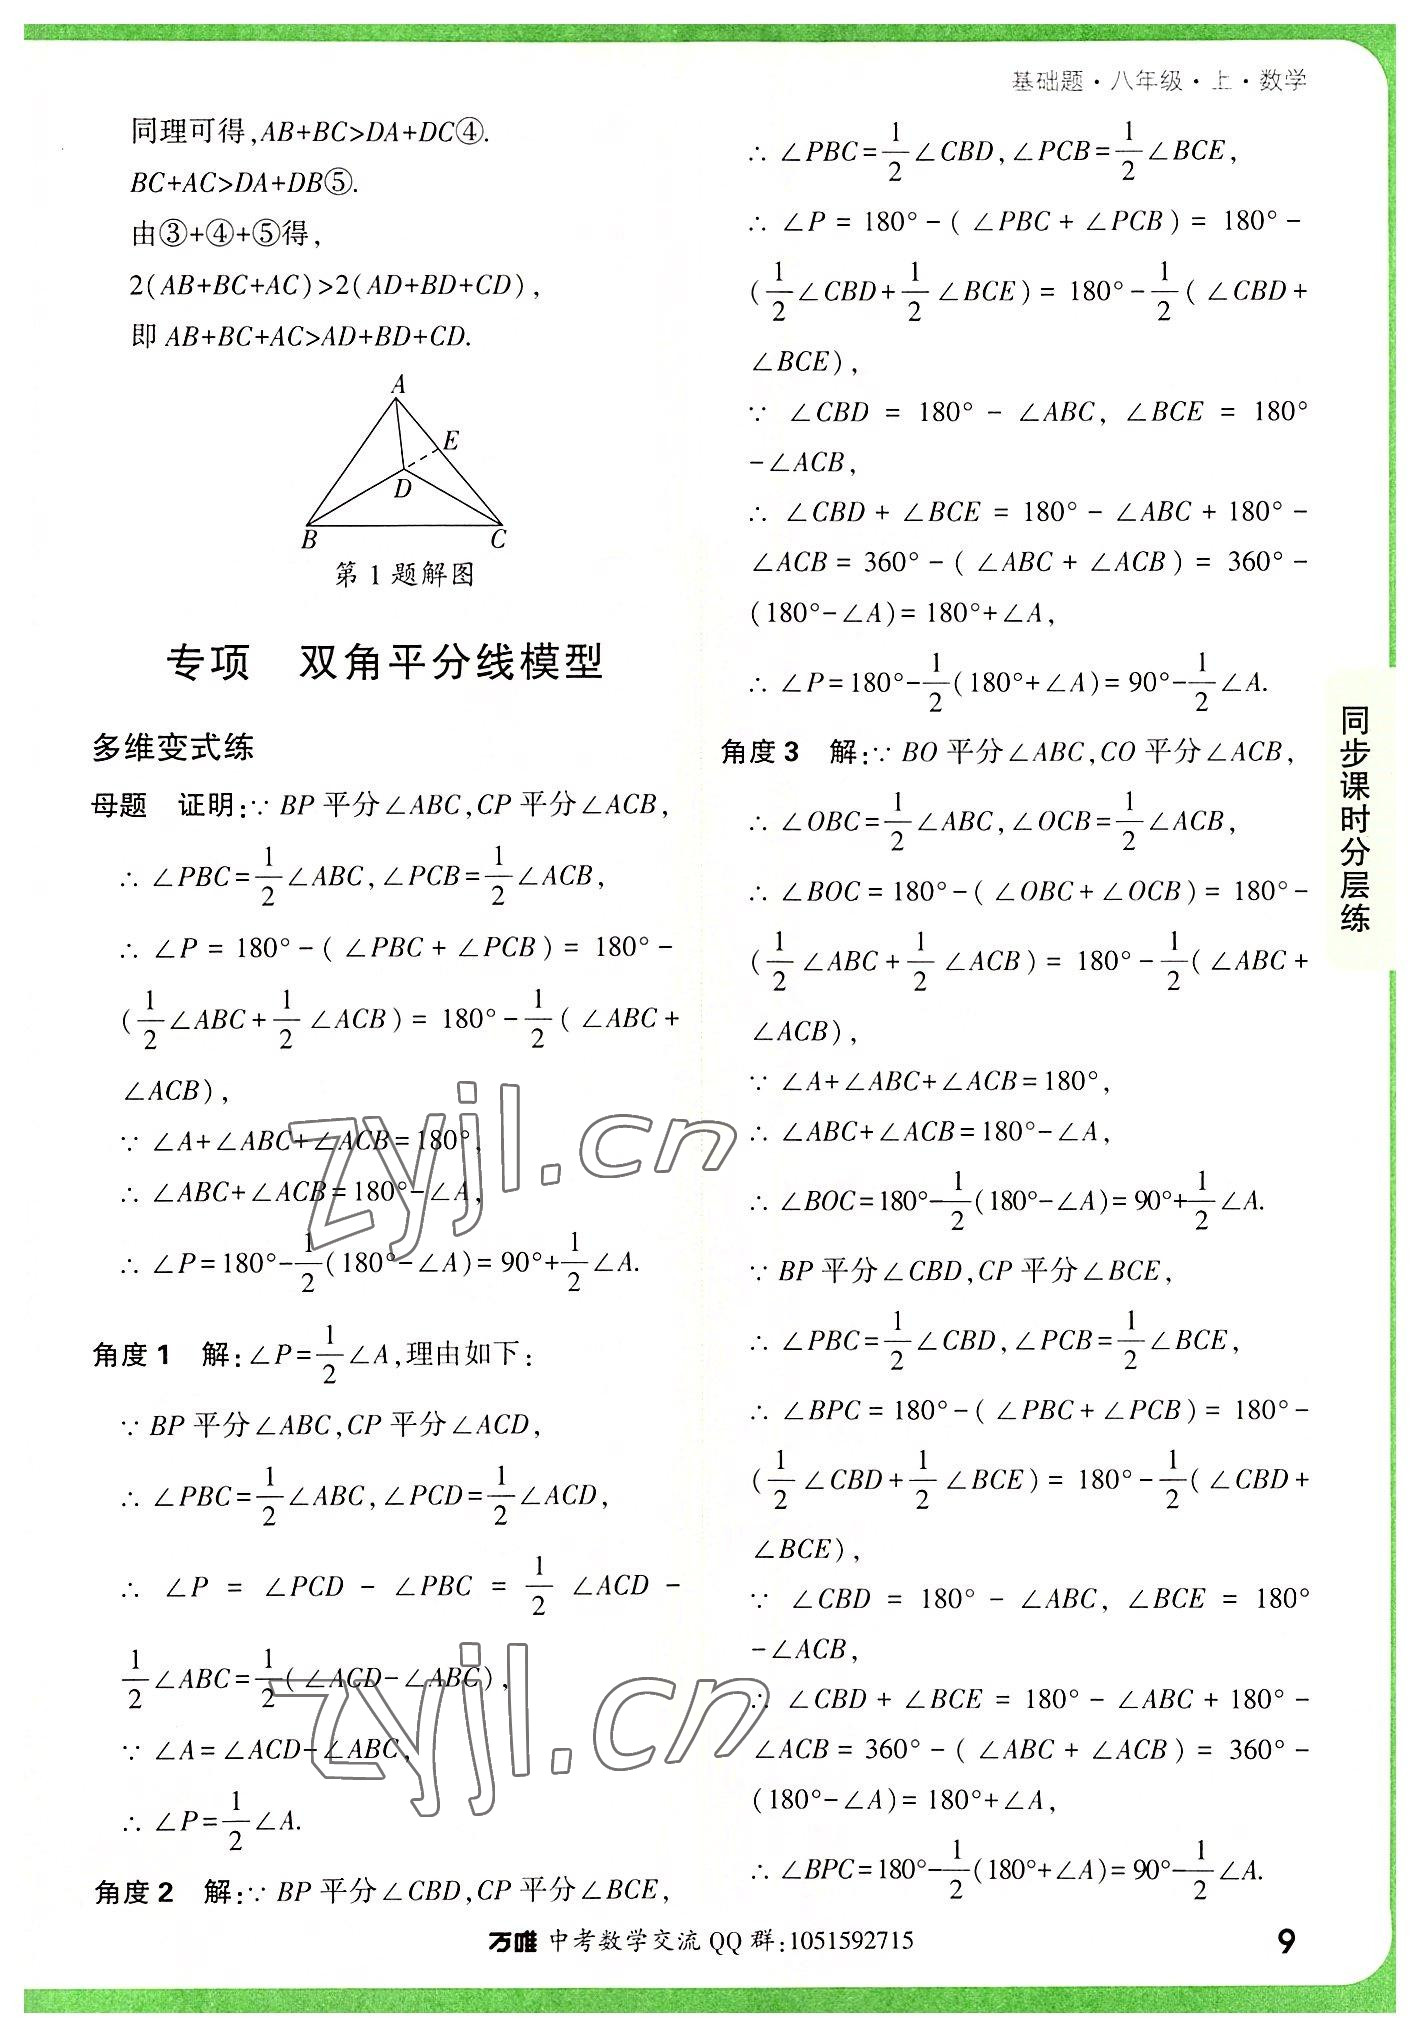 基础题·八年级·上·数学
同理可得,AB+BC>DA+DC④.
BC+AC>DA+DB⑤.
由③+④+⑤得,
2(AB+BC+AC)>2(AD+BD+CD),
即 AB+BC+AC>AD+BD+CD.
A
E
D
B
C
第 1 题解图
专项 双角平分线模型
多维变式练
母题 证明:∵ BP 平分∠ABC,CP 平分∠ACB,
∴ ∠PBC=1/2∠ABC,∠PCB=1/2∠ACB,
∴ ∠P = 180°-( ∠PBC + ∠PCB) = 180°-
(1/2∠ABC+1/2∠ACB) = 180°-1/2( ∠ABC+
∠ACB),
∵ ∠A+∠ABC+∠ACB=180°,
∴ ∠ABC+∠ACB=180°-∠A,
∴ ∠P=180°-1/2(180°-∠A)=90°+1/2∠A.
角度 1 解:∠P=1/2∠A,理由如下:
∵ BP 平分∠ABC,CP 平分∠ACD,
∴ ∠PBC=1/2∠ABC,∠PCD=1/2∠ACD,
∴ ∠P = ∠PCD - ∠PBC = 1/2 ∠ACD -
1/2∠ABC=1/2(∠ACD-∠ABC),
∵ ∠A=∠ACD-∠ABC,
∴ ∠P=1/2∠A.
角度 2 解:∵ BP 平分∠CBD,CP 平分∠BCE,
∴ ∠PBC=1/2∠CBD,∠PCB=1/2∠BCE,
∴ ∠P = 180°-( ∠PBC + ∠PCB) = 180°-
(1/2∠CBD+1/2∠BCE) = 180°-1/2( ∠CBD+
∠BCE),
∵ ∠CBD = 180° - ∠ABC, ∠BCE = 180°
-∠ACB,
∴ ∠CBD + ∠BCE = 180° - ∠ABC + 180° -
∠ACB = 360° - ( ∠ABC + ∠ACB) = 360° -
(180°-∠A)=180°+∠A,
∴ ∠P=180°-1/2(180°+∠A)=90°-1/2∠A.
角度 3 解:∵ BO 平分∠ABC,CO 平分∠ACB,
∴ ∠OBC=1/2∠ABC,∠OCB=1/2∠ACB,
∴ ∠BOC = 180°-( ∠OBC+∠OCB) = 180°-
(1/2∠ABC+1/2∠ACB) = 180°-1/2( ∠ABC+
∠ACB),
∵ ∠A+∠ABC+∠ACB=180°,
∴ ∠ABC+∠ACB=180°-∠A,
∴ ∠BOC=180°-1/2(180°-∠A)=90°+1/2∠A.
∵ BP 平分∠CBD,CP 平分∠BCE,
∴ ∠PBC=1/2∠CBD,∠PCB=1/2∠BCE,
∴ ∠BPC = 180°-( ∠PBC+∠PCB) = 180°-
(1/2∠CBD+1/2∠BCE) = 180°-1/2( ∠CBD+
∠BCE),
∵ ∠CBD = 180° - ∠ABC, ∠BCE = 180°
-∠ACB,
∴ ∠CBD + ∠BCE = 180° - ∠ABC + 180° -
∠ACB = 360° - ( ∠ABC + ∠ACB) = 360° -
(180°-∠A)=180°+∠A,
∴ ∠BPC=180°-1/2(180°+∠A)=90°-1/2∠A.
同步课时分层练
zyjl.cn
zyjl.cn
万唯 中考数学交流 QQ 群:1051592715
9